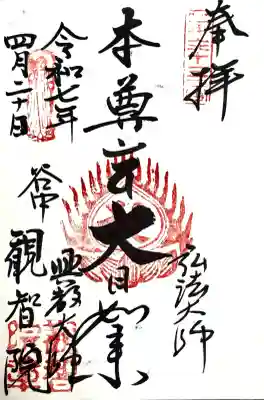 奉拝
弘法大師
本尊 大日如来
興教大師
谷中 観智院
令和七年
四月二十日